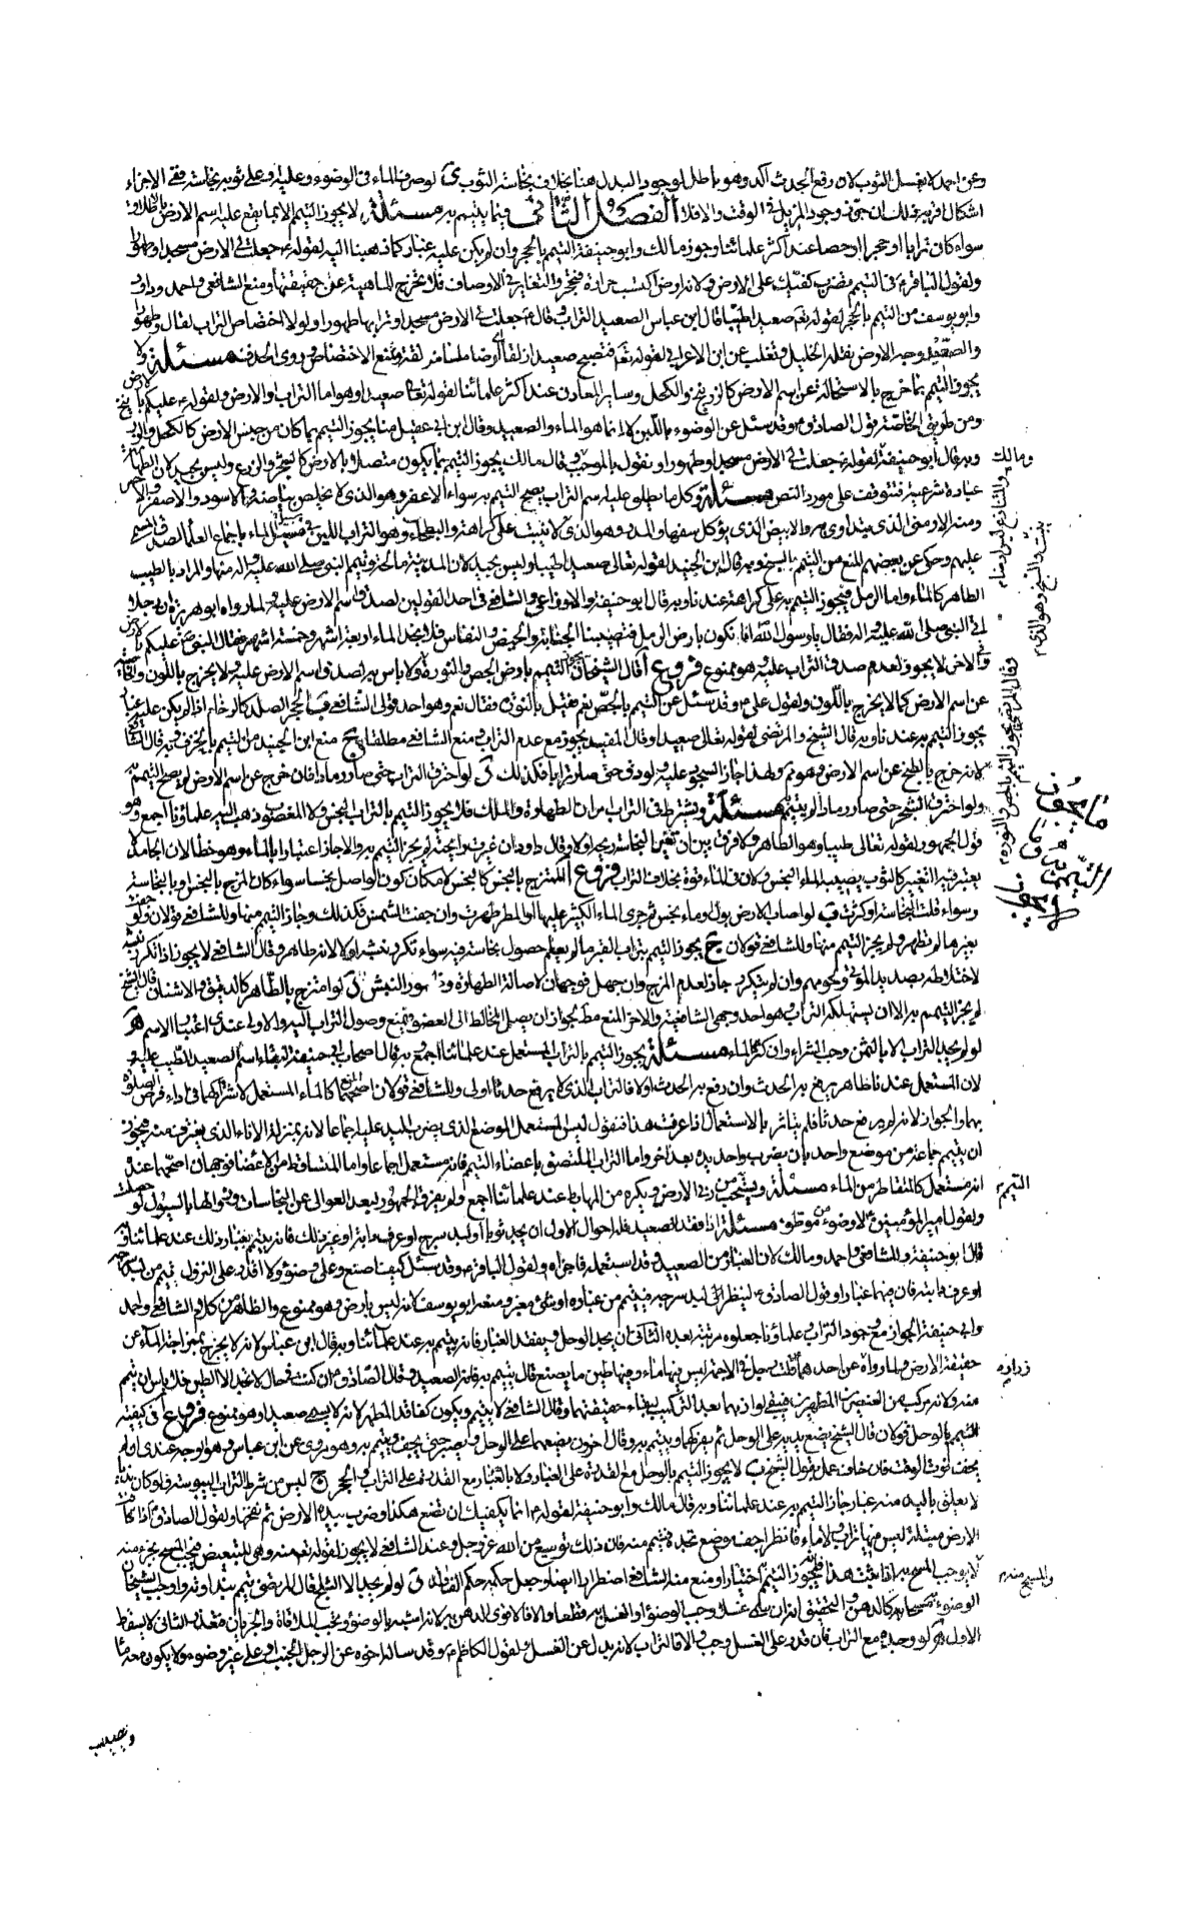 وعن احمد لا يغسل الثوب لان رفع الحدث آكد وهو باطل لوجود البدل هنا بخلاف نجاسة الثوب ى لو صرف الماء فى الوضوء وعليه وعلى ثوبه نجاسة ففى الاجزاء
اشكال اقربه ذلك ان جوز وجود المزيل فى الوقت والا فلا الفصل الثانى فيما يتيمم به مسئلة لا يجوز التيمم الا بما يقع عليه اسم الارض بالاطلاق
سواء كان ترابا او حجرا او حصا عند اكثر علمائنا وجوز مالك وابو حنيفة التيمم بالحجر وان لم يكن عليه غبار كما ذهبنا اليه لقوله ع جعلت لى الارض مسجدا وطهورا
ولقول الباقر ع فى التيمم تضرب بكفيك على الارض ولانه ارض اكتسب حرارة فتحجر والتغاير فى الاوصاف فلا تخرج الماهية عن حقيقتها ومنع الشافعى واحمد وداود
وابو يوسف من التيمم بالحجر لقوله تعم صعيدا طيبا قال ابن عباس الصعيد التراب وقال ع جعلت لى الارض مسجدا وترابها طهورا ولولا اختصاص التراب لقال وطهورا
والصعيد وجه الارض نقله الخليل وثعلب عن ابن الاعرابى لقوله تعم فتصبح صعيدا زلقا اى ارضا ملساء مزلقة ونمنع الاختصاص وروى الحذف مسئلة ولا
يجوز التيمم بما خرج بالاستحالة عن اسم الارض كالزرنيخ والكحل وساير المعادن عند اكثر علمائنا لقوله تعا صعيدا وهو اما التراب او الارض ولقوله ع عليكم بالارض
ومن طريق الخاصة قول الصادق ع وقد سئل عن الوضوء باللبن لا انما هو الماء والصعيد وقال ابن ابى عقيل منا يجوز التيمم بما كان من جنس الارض كالكحل والزرنيخ
وبه قال ابو حنيفة لقوله ع جعلت لى الارض مسجدا وطهورا ونقول بالموجب وقال مالك يجوز التيمم بما يكون متصلا بالارض كالشجر والزرع وليس بجيد لان الطهارة
عبادة شرعية فتتوقف على مورد النص مسئلة وكل ما يطلق عليه اسم التراب يصح التيمم به سواء الاعفر وهو الذى لا يخلص بياضه والاسود والاصفر والاحمر
ومنه الارمنى الذى يتداوى به والابيض الذى يؤكل سفها والمدر وهو الذى لا ينبت على كراهة والبطحاء وهو التراب اللين فى مسيل الماء باجماع العلماء لصدق الاسم
عليهم وحكى عن بعضهم المنع من التيمم بالسبخ وبه قال ابن الجنيد لقوله تعالى صعيدا طيبا وليس بجيد لان المدينة مالحة وتيمم النبى صلى الله عليه واله منها والمراد بالطيب
الطاهر كالماء واما الرمل فيجوز التيمم به على كراهة عندنا وبه قال ابو حنيفة والاوزاعى والشافعى فى احد القولين لصدق اسم الارض عليه ولما رواه ابو هريرة ان رجلا
اتى النبى صلى الله عليه واله فقال يا رسول الله انا نكون بارض الرمل فتصيبنا الجنابة والحيض والنفاس فلا نجد الماء اربعة اشهر وخمسة اشهر فقال النبى ص عليكم بالارض
والاخر لا يجوز لعدم صدق التراب عليه وهو ممنوع فروع آ قال الشيخان يجوز التيمم بارض الجص والنورة ولا باس به لصدق اسم الارض عليه ولا يخرج باللون والخاصية
عن اسم الارض كما لا يخرج باللون ولقول على ع وقد سئل عن التيمم بالجص نعم فقيل بالنورة فقال نعم وهو احد قولى الشافعى ب الحجر الصلد كالرخام اذا لم يكن عليه غبار
يجوز التيمم به عندنا وبه قال الشيخ والمرتضى لقوله تعالى صعيدا وقال المفيد يجوز مع عدم التراب ومنع الشافعى مطلقا ج منع ابن الجنيد من التيمم بالخزف وبه قال الشافعى
لانه خرج بالطبخ عن اسم الارض وهو ثم ولهذا جاز السجود عليه ولو دق حتى صار ترابا فكذلك د لو احترق التراب حتى صار رمادا فان خرج عن اسم الارض لم يصح التيمم به
ولو احترق الشجر حتى صار رمادا لم يتيمم به مسئلة ويشترط فى التراب امران الطهارة والملك فلا يجوز التيمم بالتراب النجس ولا المغصوب ذهب اليه علماؤنا اجمع وهو
قول الجمهور لقوله تعالى طيبا وهو الطاهر ولا فرق بين ان تغير النجاسة ريحه او لا وقال داود ان غيرت رايحته لم يجز التيمم به والا جاز اعتبارا بالماء وهو خطأ لان الجامد لا
يعتبر فيه التغير كالثوب يصيبه الماء النجس ولان فى الماء قوة بخلاف التراب فروع آ الممتزج بالنجس كالنجس لامكان كون الواصل نجسا سواء كان المزج بالنجس او بالنجاسة
وسواء قلت النجاسة او كثرت ب لو اصاب الارض بول او ماء نجس ثم جرى الماء الكثير عليها او المطر طهرت وان جفت الشمس فكذلك وجاز التيمم منها وللشافعى قولان ولو جفت
بغيرها لم تطهر ولم يجز التيمم منها وللشافعى قولان ج يجوز التيمم بتراب القبر ما لم يعلم حصول نجاسة فيه سواء تكرر نبشه او لا لانه طاهر وقال الشافعى لا يجوز اذا تكرر نبشه
لاختلاطه بصديد الموتى ولحومهم وان لم يتكرر جاز لعدم المزج وان جهل فوجهان لاصالة الطهارة النبش د لو امتزج بالطاهر كالدقيق والاشنان قال الشيخ
لم يجز التيمم به الا ان يستهلكه التراب وهو احد وجهى الشافعية والاخر المنع مط لجواز ان يصل المخالط الى العضو فيمنع وصول التراب اليه والاولى عندى اعتبار الاسم ه
لو لم يجد التراب الا بالثمن وجب الشراء وان كثر كالماء مسئلة يجوز التيمم بالتراب المستعمل عند علمائنا اجمع وبه قال اصحاب ابى حنيفة لبقاء اسم الصعيد الطيب عليه
لان المستعمل عندنا طاهر يرفع به الحدث وان رفع به الحدث اولا فالتراب الذى لا يرفع حدثا اولى وللشافعى قولان اصحهما المنع كالماء المستعمل لاشتراكهما فى اداء فرض الصلوة
بهما والجواز لانه لم يرفع حدثا فلم يتاثر بالاستعمال اذا عرفت هذا فنقول ليس المستعمل الموضع الذى يضرب اليد عليه اجماعا لانه بمنزلة الاناء الذى يغترف منه فيجوز
ان يتيمم جماعة من موضع واحد بان يضرب واحد يده بعد اخر واما التراب الملتصق باعضاء التيمم فانه مستعمل اجماعا واما المتساقط من الاعضاء فوجهان اصحهما عنده
انه مستعمل كالمتقاطر من الماء مسئلة ويستحب من ربى الارض ويكره من المهابط عند علمائنا اجمع ولم يفرق الجمهور لبعد العوالى عن النجاسات وزوالها بالسيول لو حصلت
ولقول امير المؤمنين ع لا وضوء من موطئ مسئلة اذا فقد الصعيد فله احوال الاول ان يجد ثوبا او لبد سرج او عرف دابة او غير ذلك فانه يتيمم بغبار ذلك عند علمائنا وبه
قال ابو حنيفة والشافعى واحمد ومالك لان الغبار من الصعيد وقد استعمله فاجزاه ولقول الباقر ع وقد سئل كيف اصنع وعلى وضوء ولا اقدر على النزول تيمم من لبد سرجه
او عرف دابته فان فيها غبارا وقول الصادق ع لينظر الى لبد سرجه فيتيمم من غباره او شئ مغبر ومنعه ابو يوسف لانه ليس بارض وهو ممنوع والظاهر من كلام الشافعى واحمد
وابى حنيفة الجواز مع وجود التراب وعلماؤنا جعلوه مرتبة بعده الثانى ان يجد الوحل ويفقد الغبار فانه يتيمم به عند علمائنا وبه قال ابن عباس لانه لا يخرج بمزاجه الماء عن
حقيقة الارض ولما رواه عن احدهما ع قلت رجل فى الاجمة ليس فيها ماء وفيها طين ما يصنع قال يتيمم به فانه الصعيد وقال الصادق ع ان كنت فى حال لا تجد الا الطين فلا باس ان تيمم
منه ولانه مركب من العنصرين المطهرين فيبقى لوازمها بعد التركيب لبقاء حقيقتهما وقال الشافعى لا يتيمم ويكون كفاقد المطهر لانه لا يسمى صعيدا وهو ممنوع فروع آ فى كيفية
التيمم بالوحل قولان قال الشيخ يضع يديه على الوحل ثم يفركهما ويتيمم به وقال اخرون يضعهما على الوحل ويصبر حتى يجف ويتيمم به وهو مروى عن ابن عباس وهو الوجه عندى ان لم
يخف فوت الوقت فان خاف عمل بقول الشيخ ب لا يجوز التيمم بالوحل مع القدرة على الغبار ولا بالغبار مع القدرة على التراب والحجر ج ليس من شرط التراب اليبوسة فلو كان نديا
لا يعلق باليد منه غبار جاز التيمم به عند علمائنا وبه قال مالك وابو حنيفة لقوله ع انما يكفيك ان تضع هكذا وضرب بيده الارض ثم نفخها ولقول الصادق ع اذا كانت
الارض مبتلة ليس فيها تراب ولا ماء فانظر اجف موضع تجده فتيمم منه فان ذلك توسيع من الله عز وجل وعند الشافعى لا يجوز لقوله تعم منه وهى للتبعيض فيجب المسح بجزء منه
لا يوجب المسح به اذا ثبت هذا فيجوز التيمم به اختيارا ومنع منه الشافعى اضطرارا ايضا وجعل حكمه حكم الفاقد د لو لم يجد الا الثلج قال المرتضى يتيمم بنداوته واوجب الشيخان
الوضوء بمسحها به كالدهن والتحقيق انه ان سمى غسلا وجب الوضوء او الغسل به قطعا والا فالاقوى الدهن به لانه اشبه بالوضوء ويجب الملاقاة والجريان فتعذر الثانى لا يسقط
الاول ه لو وجده مع التراب فان قدر على الغسل وجب والا فالتراب لانه بدل عن الغسل ولقول الكاظم ع وقد ساله اخوه عن الرجل الجنب او على غير وضوء ولا يكون معه ماء
ومالك
والشافعى
ما يجوز
التيمم به وما
لا يجوز
التيمم
زرارة
والمسح منه
ويصيب